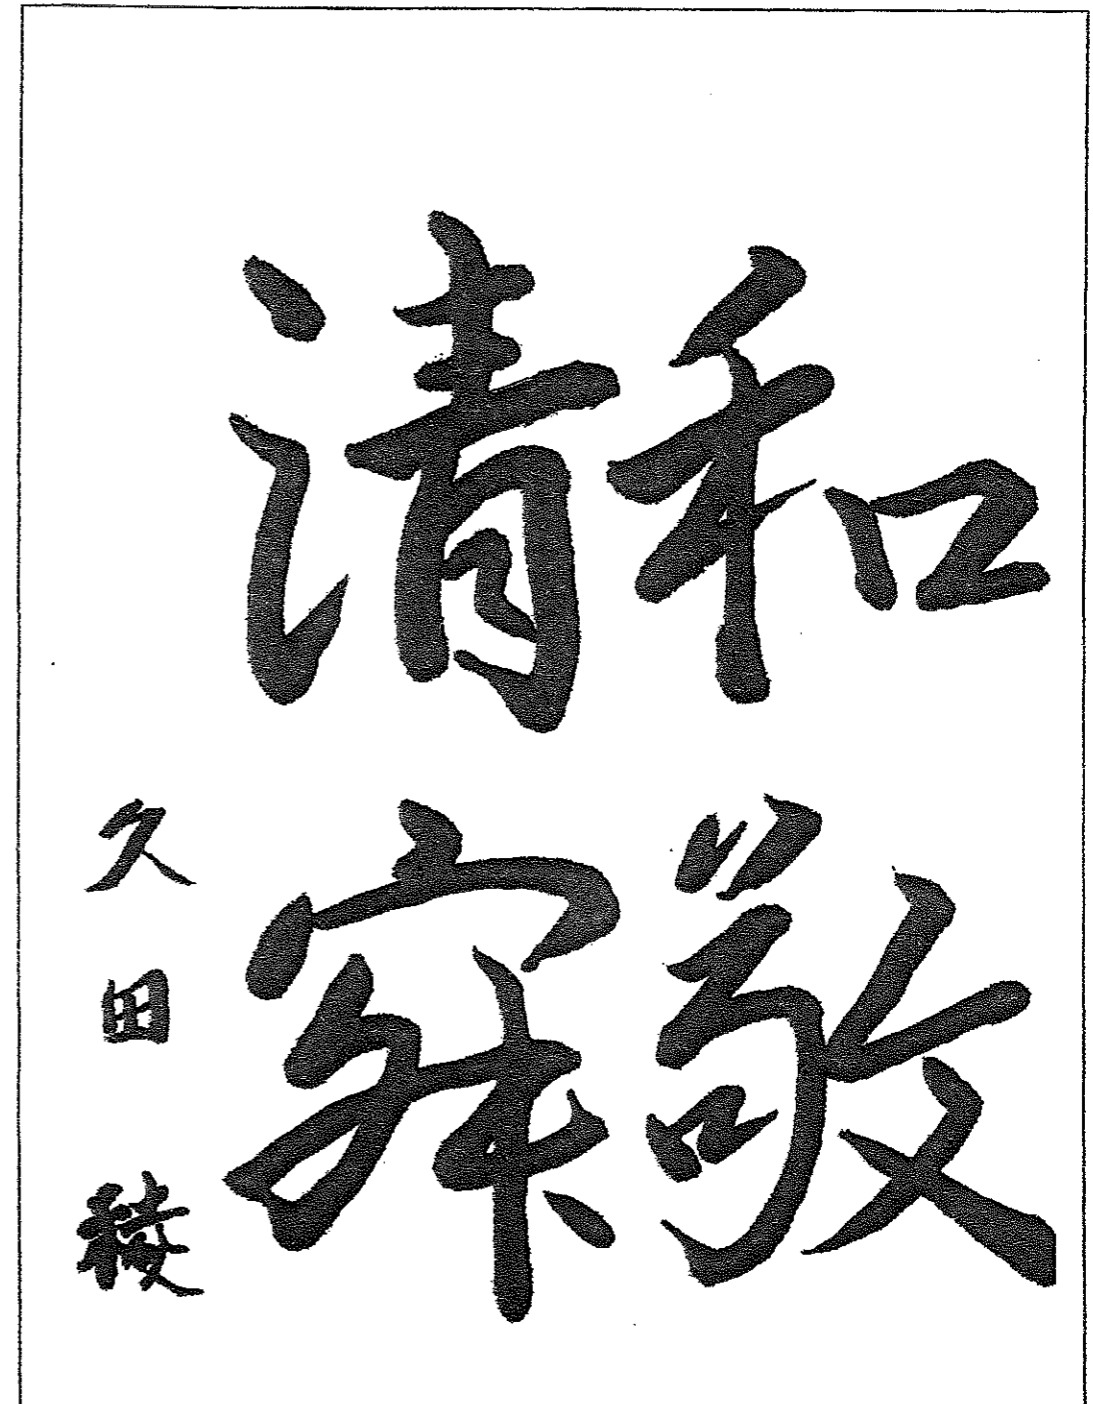 和敬
清寂
久田稜